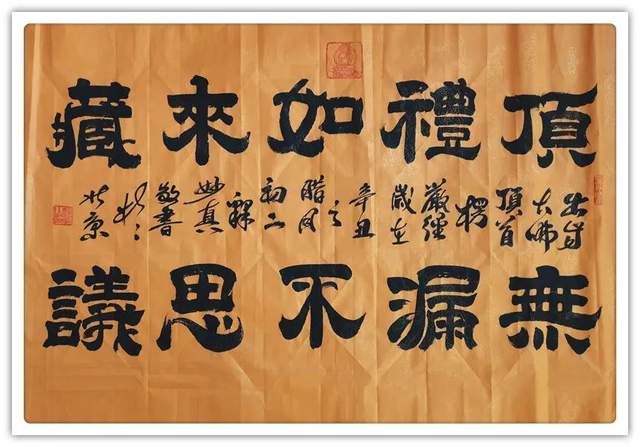 頂禮如來藏
出自大佛頂首楞嚴經歲在辛丑之腊月初二釋妙真敬書於北京
無漏不思議